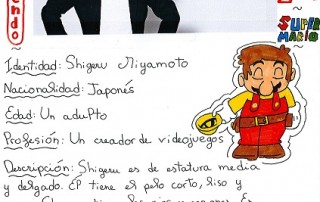 ndo
SUPER
MARIO
Identidad: Shigeru Miyamoto
Nacionalidad: Japonés
Edad: Un adulto
Profesión: Un creador de videojuegos
Descripción: Shigeru es de estatura media
y delgado. Él tiene el pelo corto, liso y